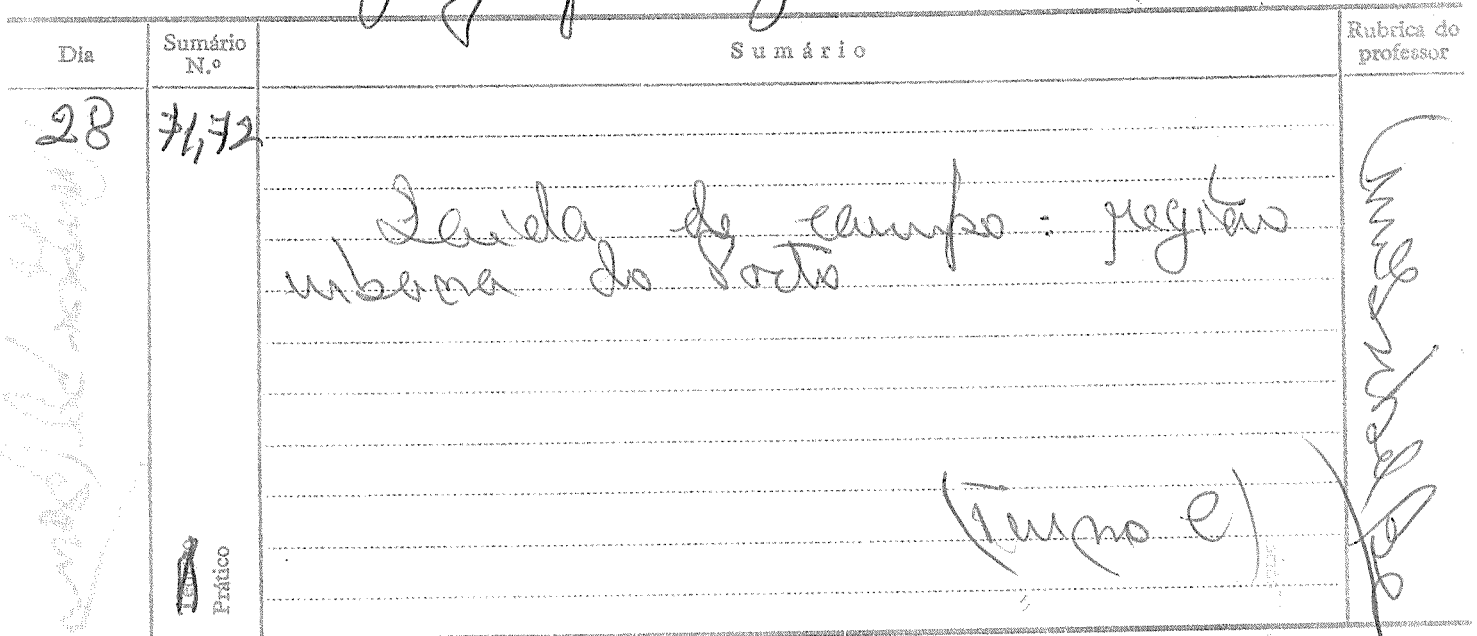 Dia
Sumário N.º
Sumário
Rubrica do professor
28
71,72
Saída de campo: região
urbana do Porto
(Turno C)
Prático